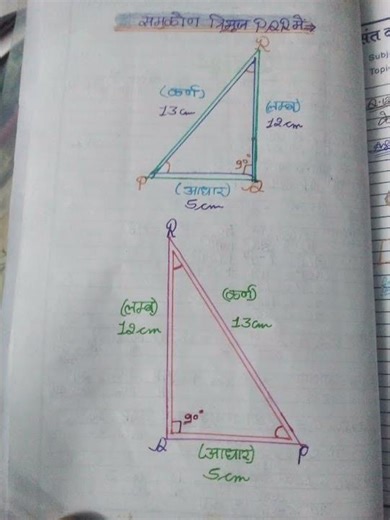 समकोण त्रिभुज PQR में→
R
(कर्ण)
13cm
(लम्ब)
12cm
90°
P
Q
(आधार)
5cm
R
(लम्ब)
12cm
(कर्ण)
13cm
90°
Q
P
(आधार)
5cm
Subj
Topi